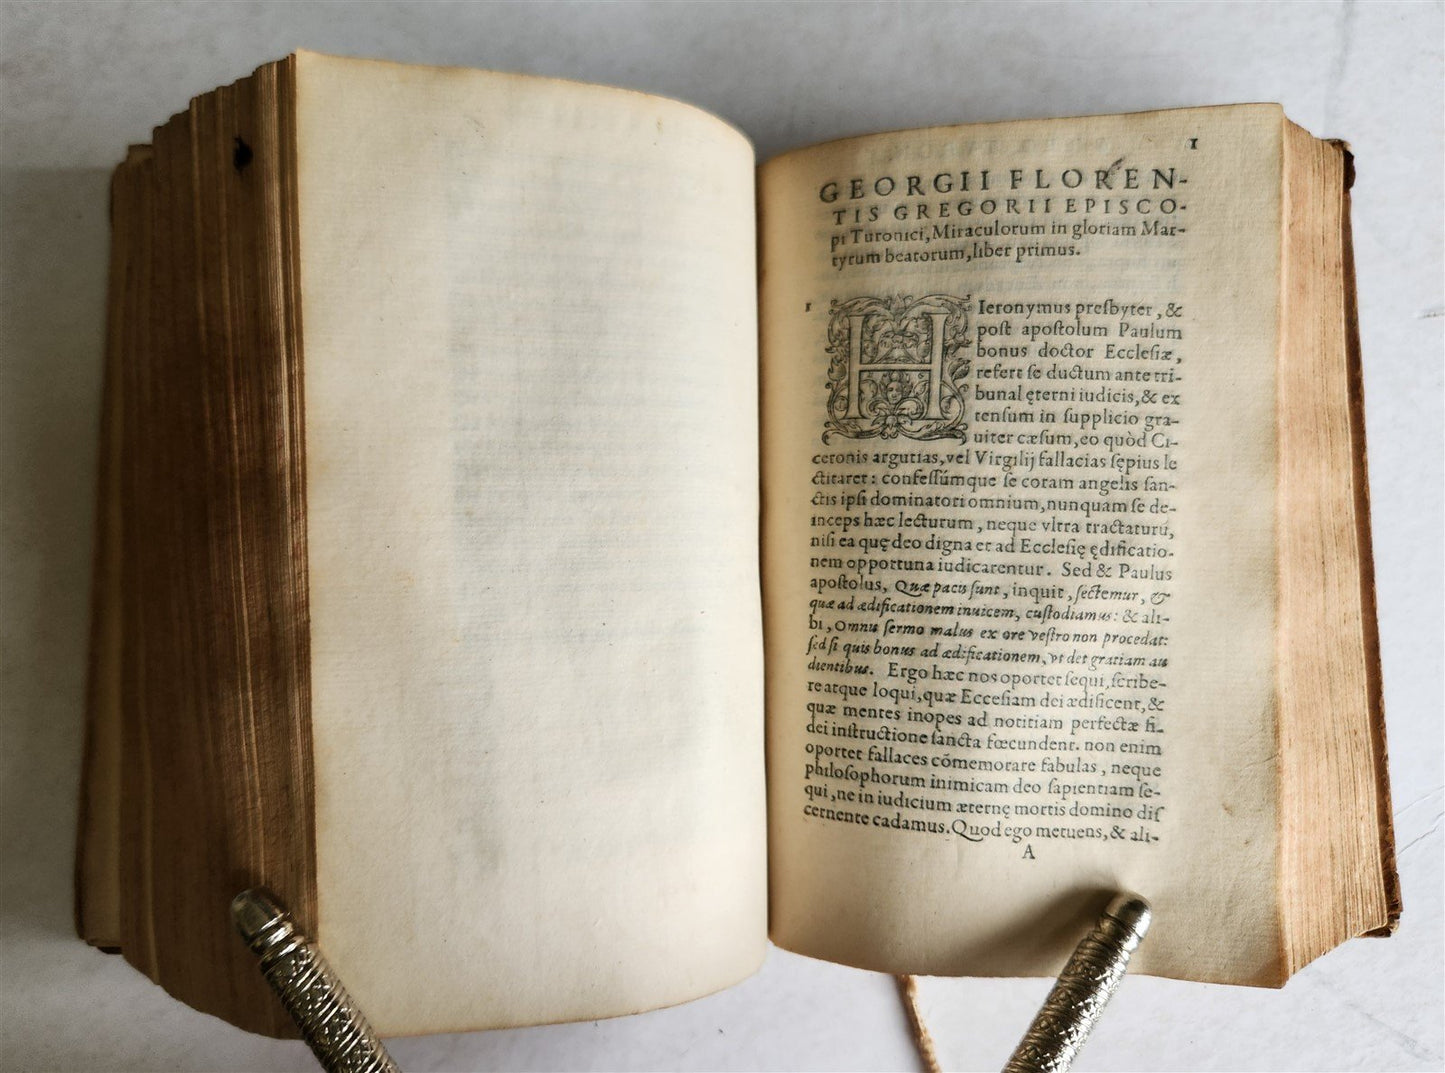 1
GEORGII FLOREN-
TIS GREGORII EPISCO-
pi Turonici, Miraculorum in gloriam Mar-
tyrum beatorum, liber primus.
1 HIeronymus presbyter, &
post apostolum Paulum
bonus doctor Ecclesiæ,
refert se ductum ante tri-
bunal ęterni iudicis, & ex
tensum in supplicio gra-
uiter cæsum, eo quòd Ci-
ceronis argutias, vel Virgilij fallacias sępius le
ctitaret: confessúmque se coram angelis san-
ctis ipsi dominatori omnium, nunquam se de-
inceps hæc lecturum, neque vltra tractaturū,
nisi ea quę deo digna et ad Ecclesię ędificatio-
nem opportuna iudicarentur. Sed & Paulus
apostolus, Quæ pacis sunt, inquit, sectemur, &
quæ ad ædificationem inuicem, custodiamus: & ali-
bi, Omnis sermo malus ex ore vestro non procedat:
sed si quis bonus ad ædificationem, vt det gratiam au
dientibus. Ergo hæc nos oportet sequi, scribe-
re atque loqui, quæ Eccesiam dei ædificent, &
quæ mentes inopes ad notitiam perfectæ fi-
dei instructione sancta fœcundent. non enim
oportet fallaces cōmemorare fabulas, neque
philosophorum inimicam deo sapientiam se-
qui, ne in iudicium æternę mortis domino dis
cernente cadamus. Quod ego metuens, & ali-
A